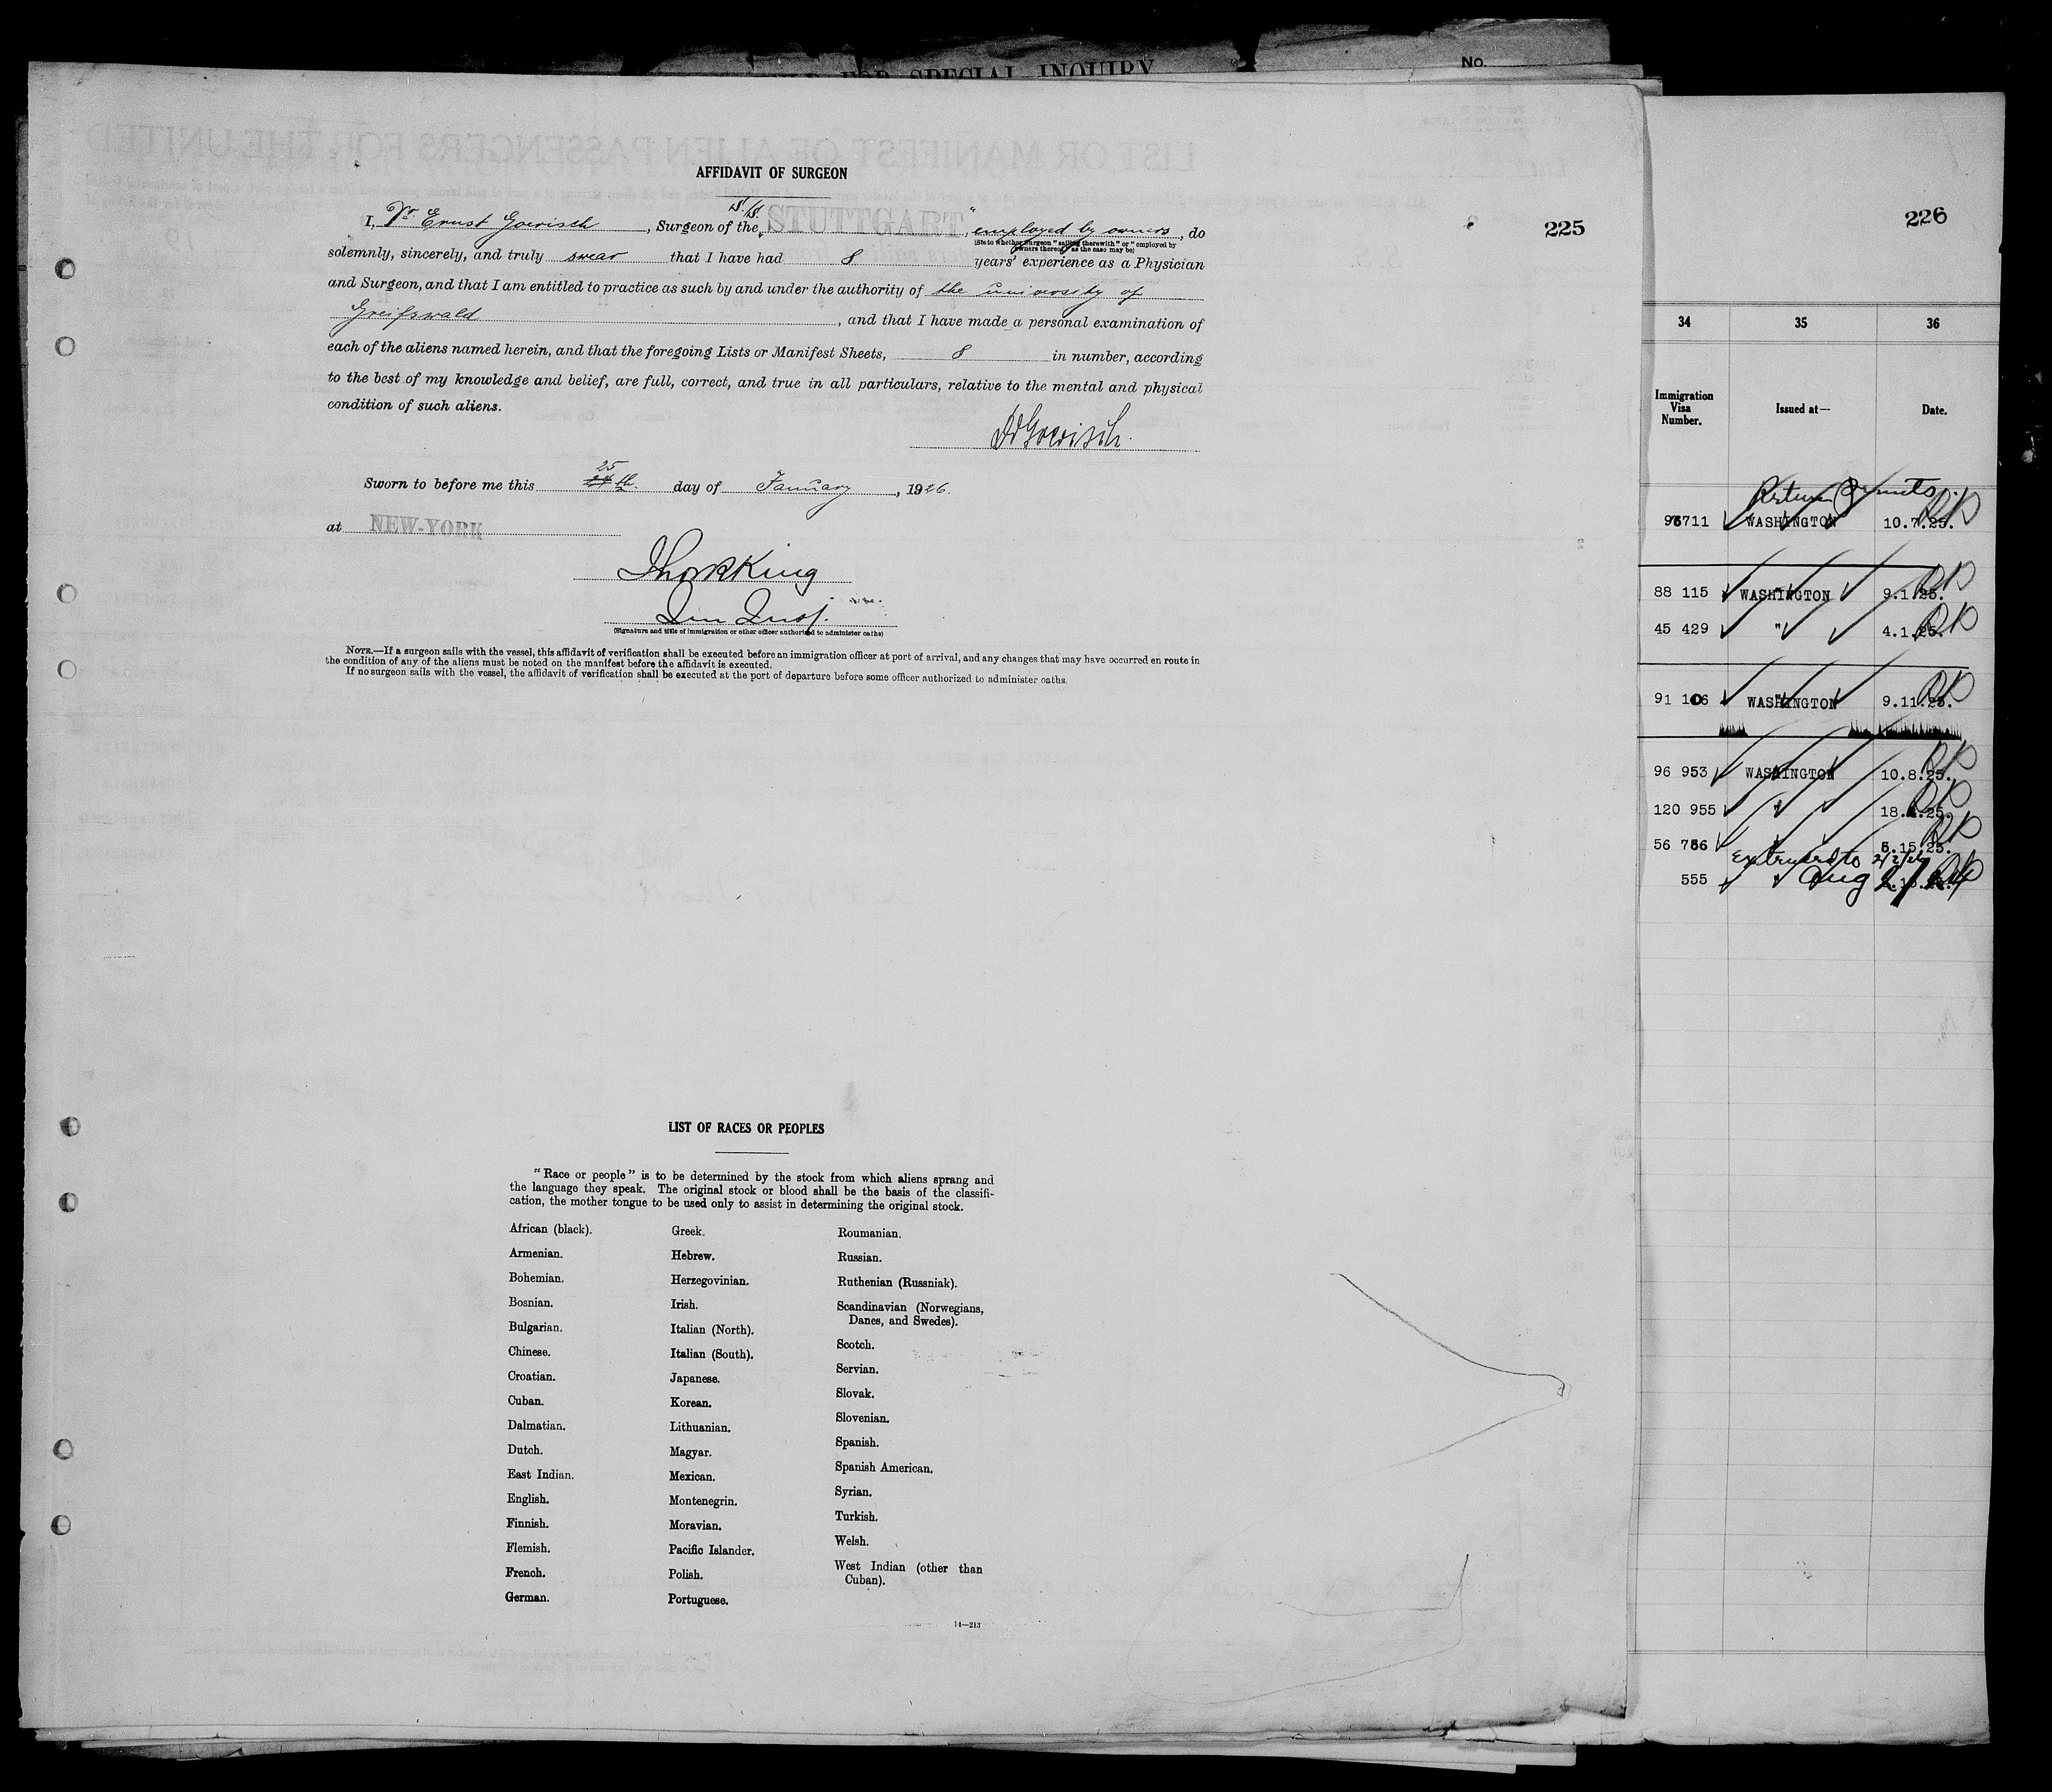 FOR SPECIAL INQUIRY
No.
LIST OR MANIFEST OF ALIEN PASSENGERS FOR THE UNITED
AFFIDAVIT OF SURGEON
225
I, Dr. Ernst Goerisch, Surgeon of the S/S. "STUTTGART", employed by owners, do
(State whether Surgeon "sailing therewith" or "employed by
owners thereof," as the case may be)
solemnly, sincerely, and truly swear that I have had 8 years' experience as a Physician
and Surgeon, and that I am entitled to practice as such by and under the authority of the university of
Greifswald, and that I have made a personal examination of
each of the aliens named herein, and that the foregoing Lists or Manifest Sheets, 8 in number, according
to the best of my knowledge and belief, are full, correct, and true in all particulars, relative to the mental and physical
condition of such aliens.
Dr Goerisch.
25
Sworn to before me this 24th. day of January, 1926.
at NEW-YORK
King
Imm Insp.
(Signature and title of immigration or other officer authorized to administer oaths)
NOTE.—If a surgeon sails with the vessel, this affidavit of verification shall be executed before an immigration officer at port of arrival, and any changes that may have occurred en route in
the condition of any of the aliens must be noted on the manifest before the affidavit is executed.
If no surgeon sails with the vessel, the affidavit of verification shall be executed at the port of departure before some officer authorized to administer oaths.
LIST OF RACES OR PEOPLES
"Race or people" is to be determined by the stock from which aliens sprang and
the language they speak. The original stock or blood shall be the basis of the classifi-
cation, the mother tongue to be used only to assist in determining the original stock.
African (black).
Armenian.
Bohemian.
Bosnian.
Bulgarian.
Chinese.
Croatian.
Cuban.
Dalmatian.
Dutch.
East Indian.
English.
Finnish.
Flemish.
French.
German.
Greek.
Hebrew.
Herzegovinian.
Irish.
Italian (North).
Italian (South).
Japanese.
Korean.
Lithuanian.
Magyar.
Mexican.
Montenegrin.
Moravian.
Pacific Islander.
Polish.
Portuguese.
Roumanian.
Russian.
Ruthenian (Russniak).
Scandinavian (Norwegians,
Danes, and Swedes).
Scotch.
Servian.
Slovak.
Slovenian.
Spanish.
Spanish American.
Syrian.
Turkish.
Welsh.
West Indian (other than
Cuban).
14—213
226
34 35 36
Immigration
Visa
Number.
Issued at—
Date.
Return Permits.
WASHINGTON 10.7.25.
88 115 WASHINGTON 9.1.25.
45 429 " 4.1.25.
WASHINGTON 9.11.25.
96 953 WASHINGTON 10.8.25.
120 955 "
5.15.25.
extended to
555 Aug